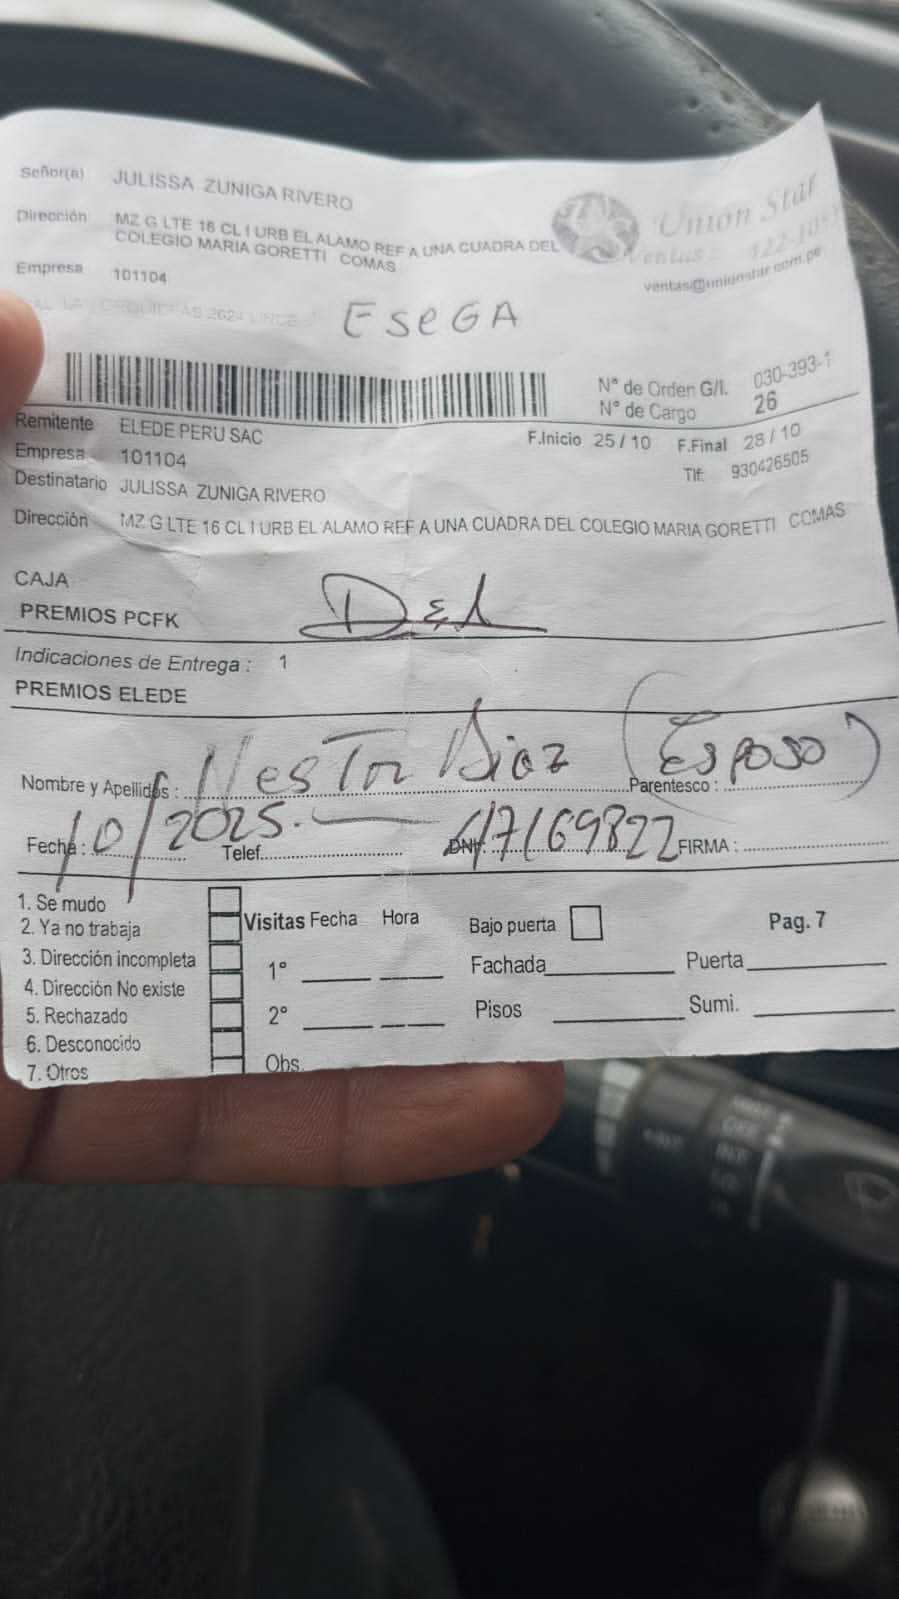 Señor(a) JULISSA ZUNIGA RIVERO
Dirección MZ G LTE 16 CL I URB EL ALAMO REF A UNA CUADRA DEL
COLEGIO MARIA GORETTI COMAS
Empresa 101104
Union Star
Ventas :
ventas@unionstar.com.pe
ESEGA
N° de Orden G/I. 030-393-1
N° de Cargo 26
Remitente ELEDE PERU SAC
F.Inicio 25 / 10 F.Final 28 / 10
Empresa 101104
Tlf: 930426505
Destinatario JULISSA ZUNIGA RIVERO
Dirección MZ G LTE 16 CL I URB EL ALAMO REF A UNA CUADRA DEL COLEGIO MARIA GORETTI COMAS
CAJA
PREMIOS PCFK
Indicaciones de Entrega : 1
PREMIOS ELEDE
Nombre y Apellidos : Nestor Diaz Parentesco : (Esposo)
Fecha : /10/2025. Telef. DNI: FIRMA :
1. Se mudo
2. Ya no trabaja
3. Dirección incompleta
4. Dirección No existe
5. Rechazado
6. Desconocido
7. Otros
Visitas Fecha Hora
1°
2°
Obs.
Bajo puerta
Fachada
Pisos
Pag. 7
Puerta
Sumi.